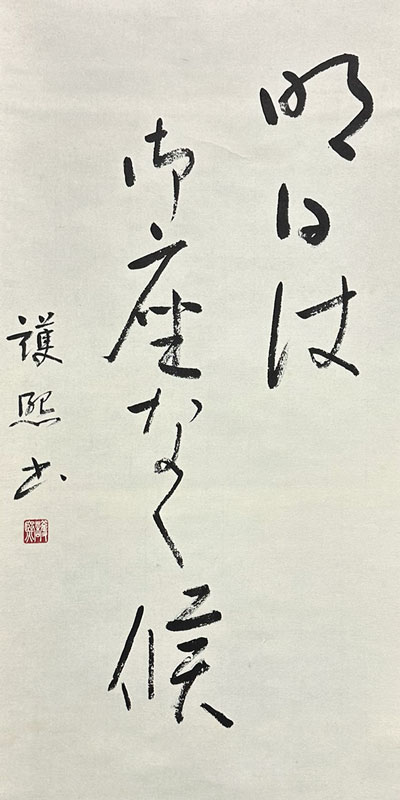 明日は
御座なく候
護熙書